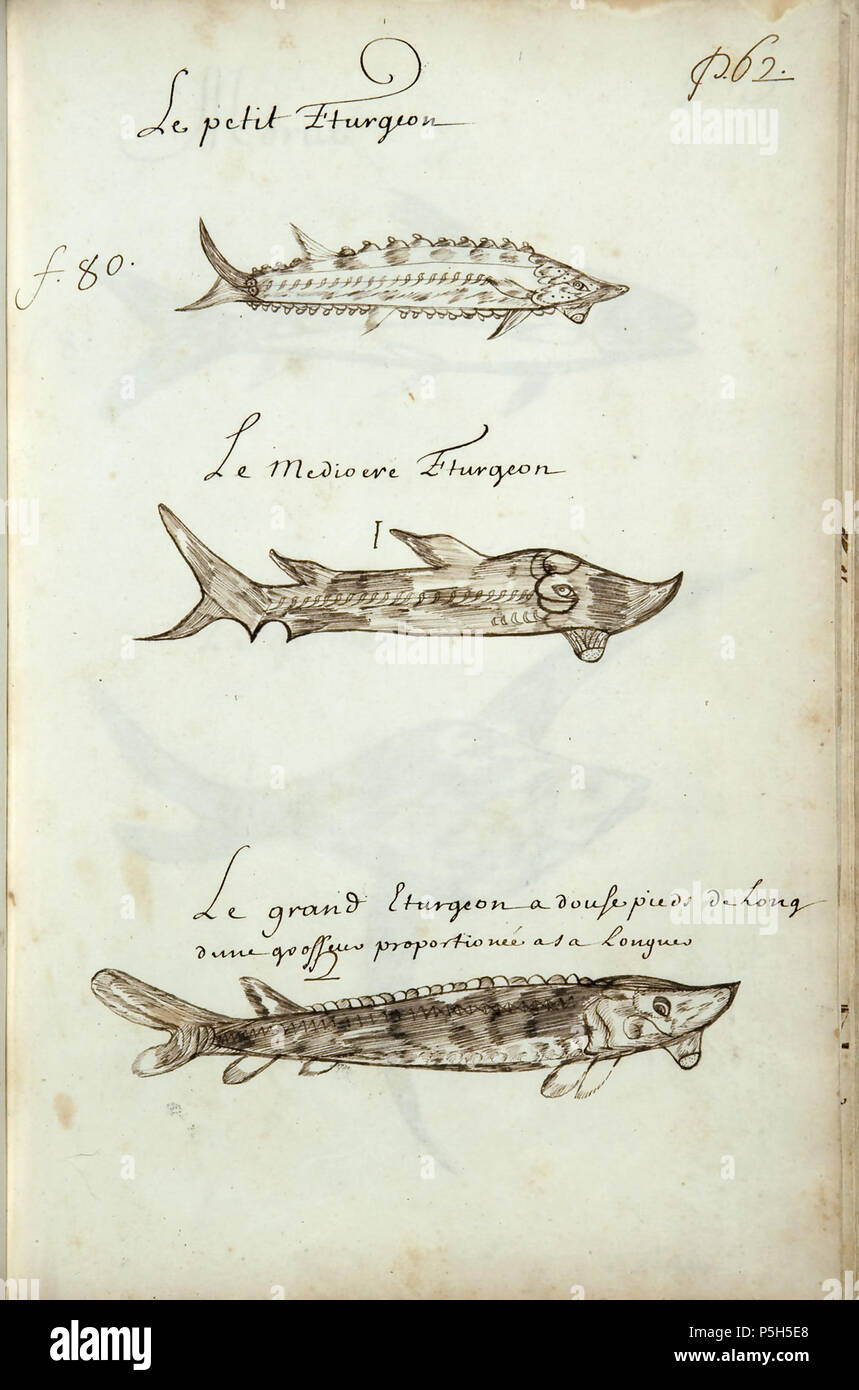 p.62.
Le petit Eturgeon
f. 80.
Le Mediocre Eturgeon
I
Le grand Eturgeon a douse pieds de Long
dune grosseur proportionée a sa Longueur
alamy
a
alamy
Image ID: P5H5E8
www.alamy.com